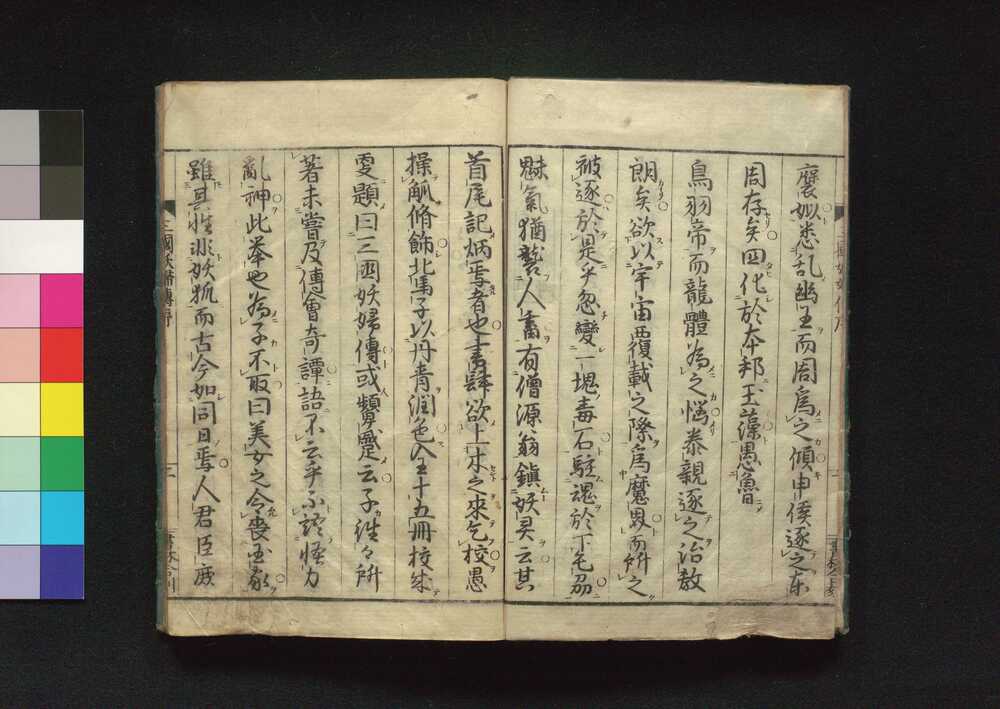 褒姒悉乱幽王而周為之傾申侯逐之東
周存矣四化於本邦玉藻愚魯
鳥羽帝而龍體為之悩泰親逐之治教
朗矣欲以宇宙覆載之際為魔界而所之
被逐於是乎忽變一塊毒石駐魂於下毛那
魅氣猶螫人畜有僧源翁鎮妖灵云其
首尾記炳焉者也書肆欲上木之來乞校愚
操觚脩飾北馬子以丹青潤色全十五冊校成
更題曰三國妖婦傳或顰蹙云子往々所
著未嘗及傳會奇譚語不云乎不語怪力
亂神此舉也為子不取曰美女之令喪国家
雖其性非妖狐而古今如同日焉人君臣庶
三國妖婦傳序
二